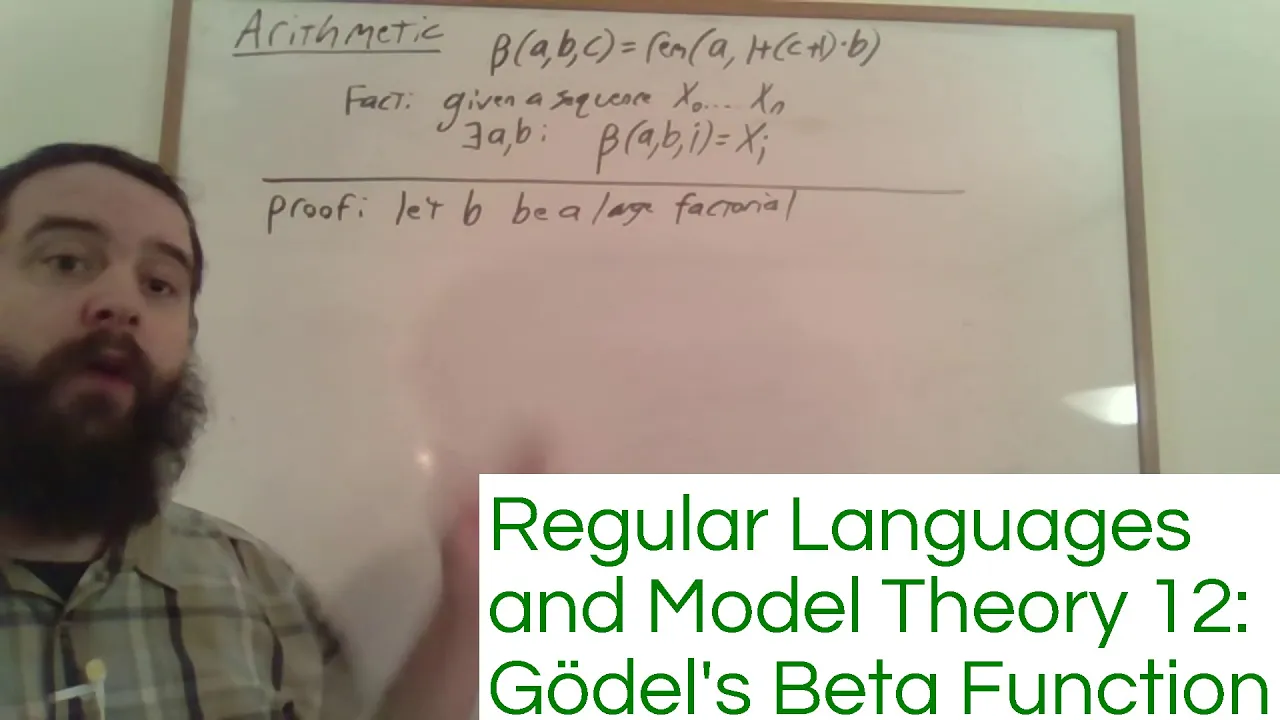 Arithmetic β(a,b,c)=rem(a, 1+(c+1)·b)
Fact: given a sequence X₀... Xₙ
∃a,b: β(a,b,i)=Xᵢ
proof: let b be a large factorial
Regular Languages
and Model Theory 12:
Gödel's Beta Function